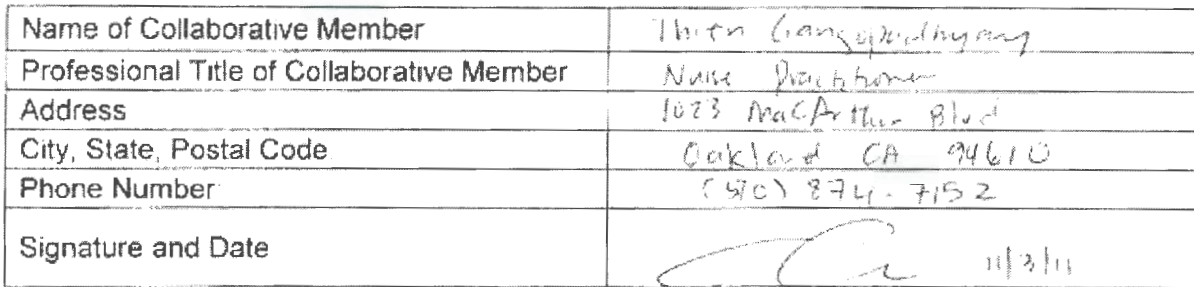 Name of Collaborative Member Thien Gangopadhyay
Professional Title of Collaborative Member Nurse Practitioner
Address 1023 MacArthur Blvd
City, State, Postal Code Oakland CA 94610
Phone Number (510) 874-7152
Signature and Date 11/3/11